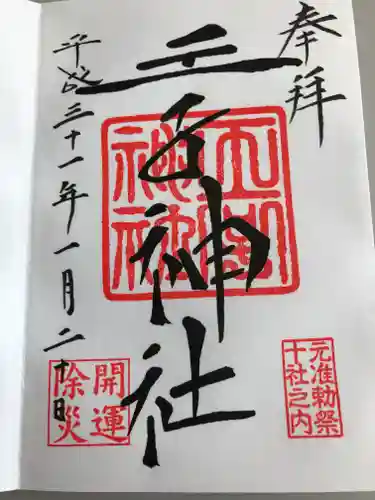 奉拝
王子神社
平成三十一年一月二十日
元准勅祭
十社之内
開運
除災